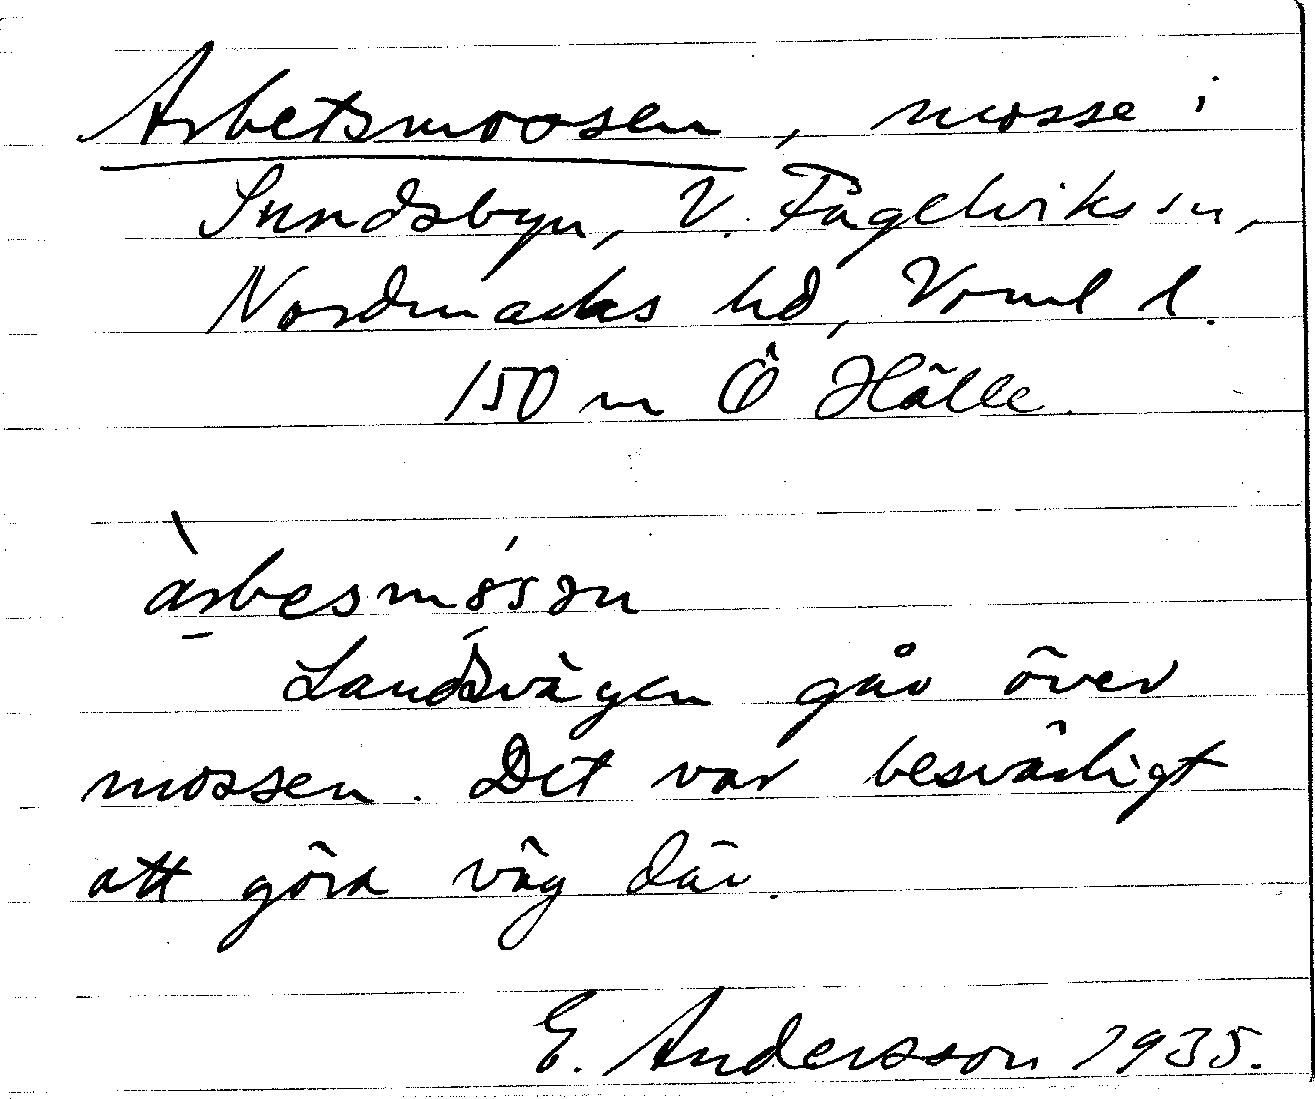 Arbetsmossen, mosse i
Sundsbyn, V. Fågelviks sn,
Nordmarks hd, Vrml l.
150 m Ö Hälle.
àrbesmósən
Landsvägen går över
mossen. Det var besvärligt
att göra väg där.
E. Andersson 1935.